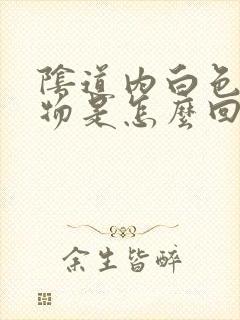 陰道內白色
物是怎麼回
余生皆醉